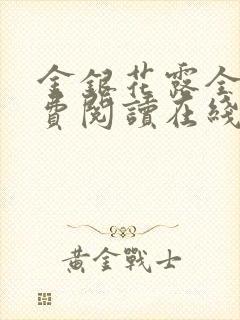 金銀花露全
費閱讀在綫
黃金戰士